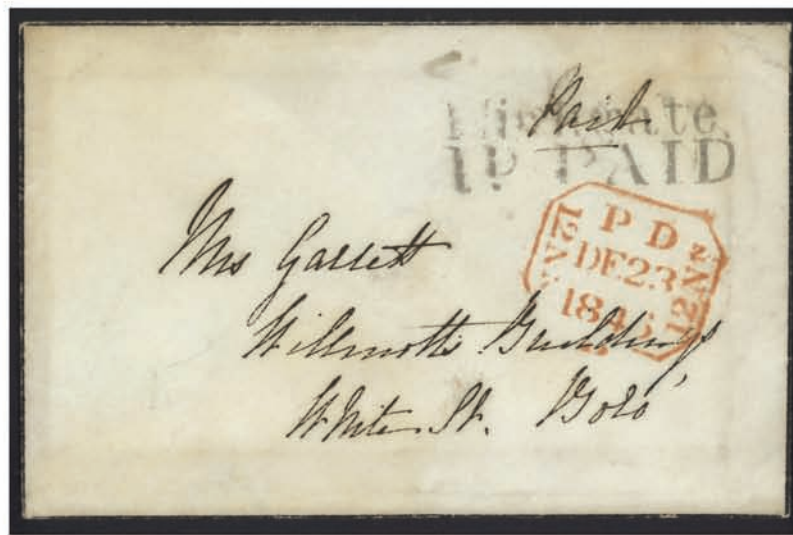 Paid
1P PAID
P D
12 Nn 12 Nn
DE 23
1845
Mrs Garrett
Willmott's Buildings
White St. Boro'